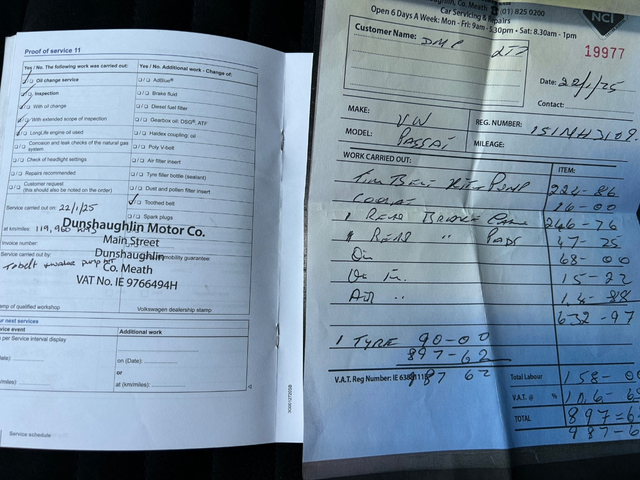 Proof of service 11
Yes / No. The following work was carried out:
Oil change service
Inspection
With oil change
With extended scope of inspection
LongLife engine oil used
Corrosion and leak checks of the natural gas system
Check of headlight settings
Repairs recommended
Customer request
(this should also be noted on the order)
Service carried out on: 22/1/25
at km/miles: 119,960
Invoice number:
Service carried out by:
Yes / No. Additional work - Change of:
AdBlue®
Brake fluid
Diesel fuel filter
Gearbox oil: DSG®, ATF
Haldex coupling: oil
Poly V-belt
Air filter insert
Tyre filler bottle (sealant)
Dust and pollen filter insert
Toothed belt
Spark plugs
mobility guarantee
Dunshaughlin Motor Co.
Main Street
Dunshaughlin
Co. Meath
VAT No. IE 9766494H
amp of qualified workshop
Volkswagen dealership stamp
ur next services
vice event
Additional work
per Service interval display
ate)
on (Date):
or
/miles)
at (km/miles):
Service schedule
Co. Meath (01) 825 0200
Car Servicing & Repairs
Open 6 Days A Week: Mon - Fri: 9am - 5.30pm • Sat: 8.30am - 1pm
NCT
19977
Customer Name:
Date: 22/1/25
Contact:
MAKE: VW
REG. NUMBER: 151MH3109
MODEL: PASSAT
MILEAGE:
WORK CARRIED OUT:
ITEM:
Timi Belt Kit & Pump 224-86
16-00
1 REAR 246-76
1 REAR " PADS 47-25
68-00
15-22
632-97
1 TYRE 90-00
897-62
987 62
V.A.T. Reg Number: IE
Total Labour 158-00
V.A.T. @ %
TOTAL 897=6
987-6